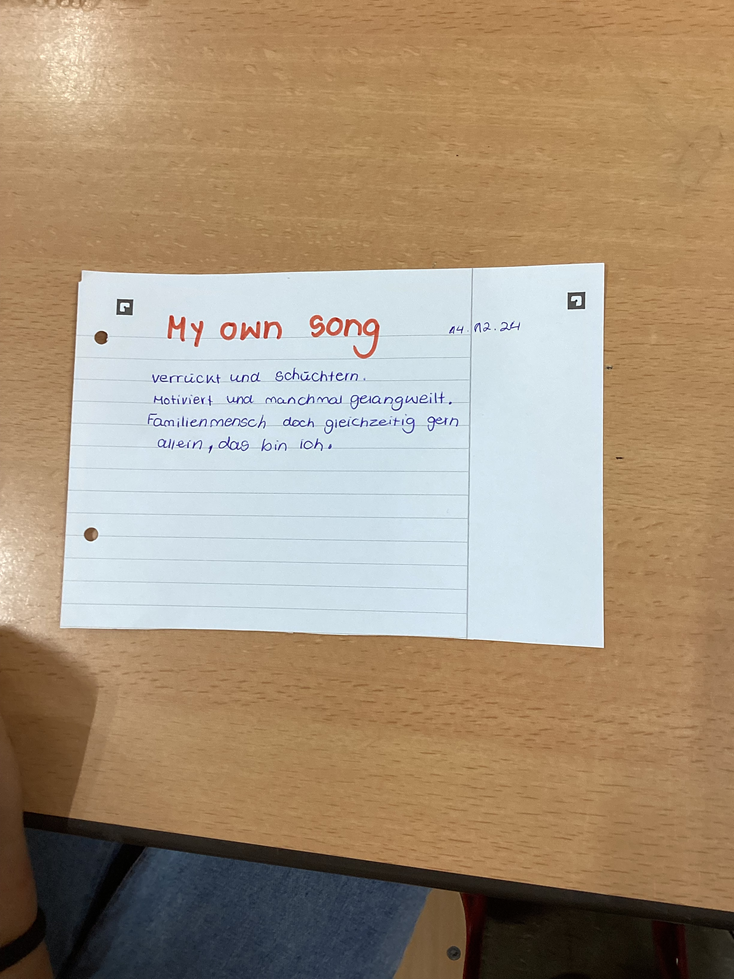 My own song
14.12.24
verrückt und schüchtern.
Motiviert und manchmal gelangweilt.
Familienmensch doch gleichzeitig gern
allein, das bin ich.